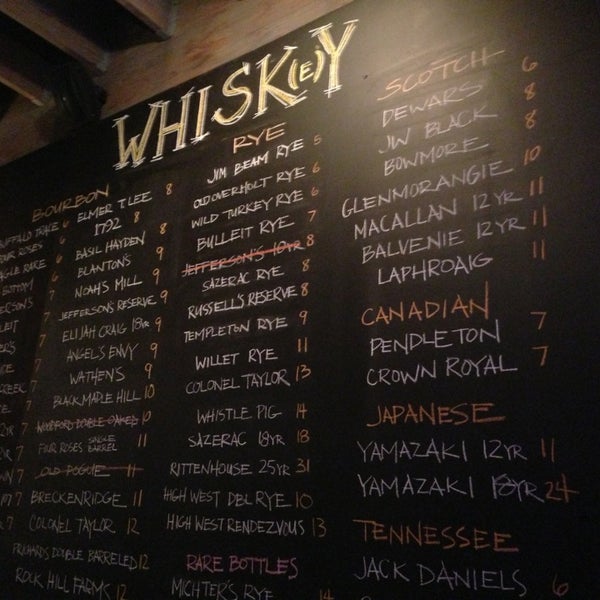 WHISK(E)Y
BOURBON
BUFFALO TRACE 6
FOUR ROSES 6
EAGLE RARE 6
BOTTOM 7
7
7
7
7
7
7
7
7
7
7
ELMER T LEE 8
1792 8
BASIL HAYDEN 8
BLANTON'S 9
NOAH'S MILL 9
JEFFERSON'S RESERVE 9
ELIJAH CRAIG 18YR 9
ANGEL'S ENVY 9
WATHEN'S 9
BLACK MAPLE HILL 10
WOODFORD DOUBLE OAKED 10
FOUR ROSES SINGLE BARREL 11
OLD POGUE 11
BRECKENRIDGE 11
COLONEL TAYLOR 12
PRICHARDS DOUBLE BARRELED 12
ROCK HILL FARMS 12
RYE
JIM BEAM RYE 5
OLD OVERHOLT RYE 6
WILD TURKEY RYE 6
BULLEIT RYE 7
JEFFERSON'S 10YR 8
SAZERAC RYE 8
RUSSELL'S RESERVE 8
TEMPLETON RYE 9
WILLET RYE 11
COLONEL TAYLOR 13
WHISTLE PIG 14
SAZERAC 18YR 18
RITTENHOUSE 25YR 31
HIGH WEST DBL RYE 10
HIGH WEST RENDEZVOUS 13
RARE BOTTLES
MICHTER'S RYE 14
SCOTCH
DEWARS 6
JW BLACK 8
BOWMORE 8
GLENMORANGIE 10
MACALLAN 12YR 11
BALVENIE 12YR 11
LAPHROAIG 11
CANADIAN
PENDLETON 7
CROWN ROYAL 7
JAPANESE
YAMAZAKI 12YR 11
YAMAZAKI 18YR 24
TENNESSEE
JACK DANIELS 6